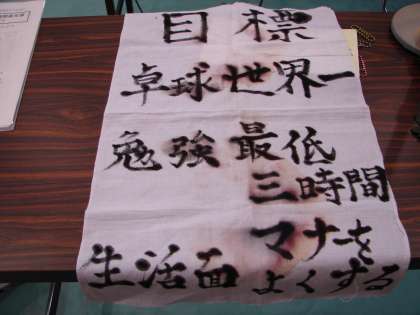 目標
卓球世界一
勉強最低
三時間
生活面マナーを
よくする